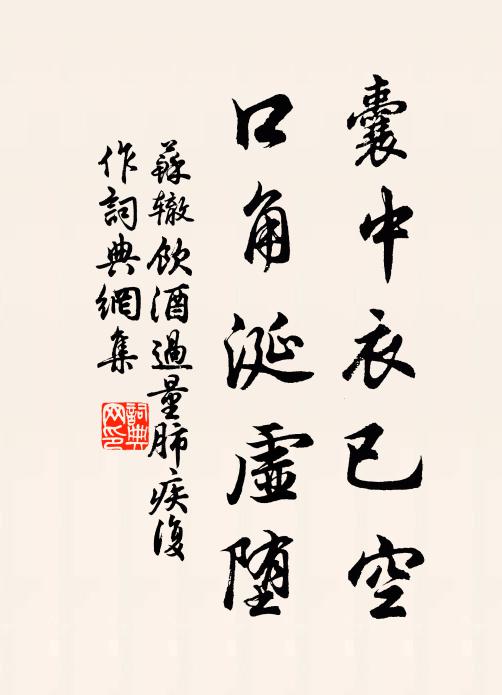 囊中衣已空
口角涎虛堕
蘇辙飲酒過量肺疾復
作詞典網集
詞典
网印